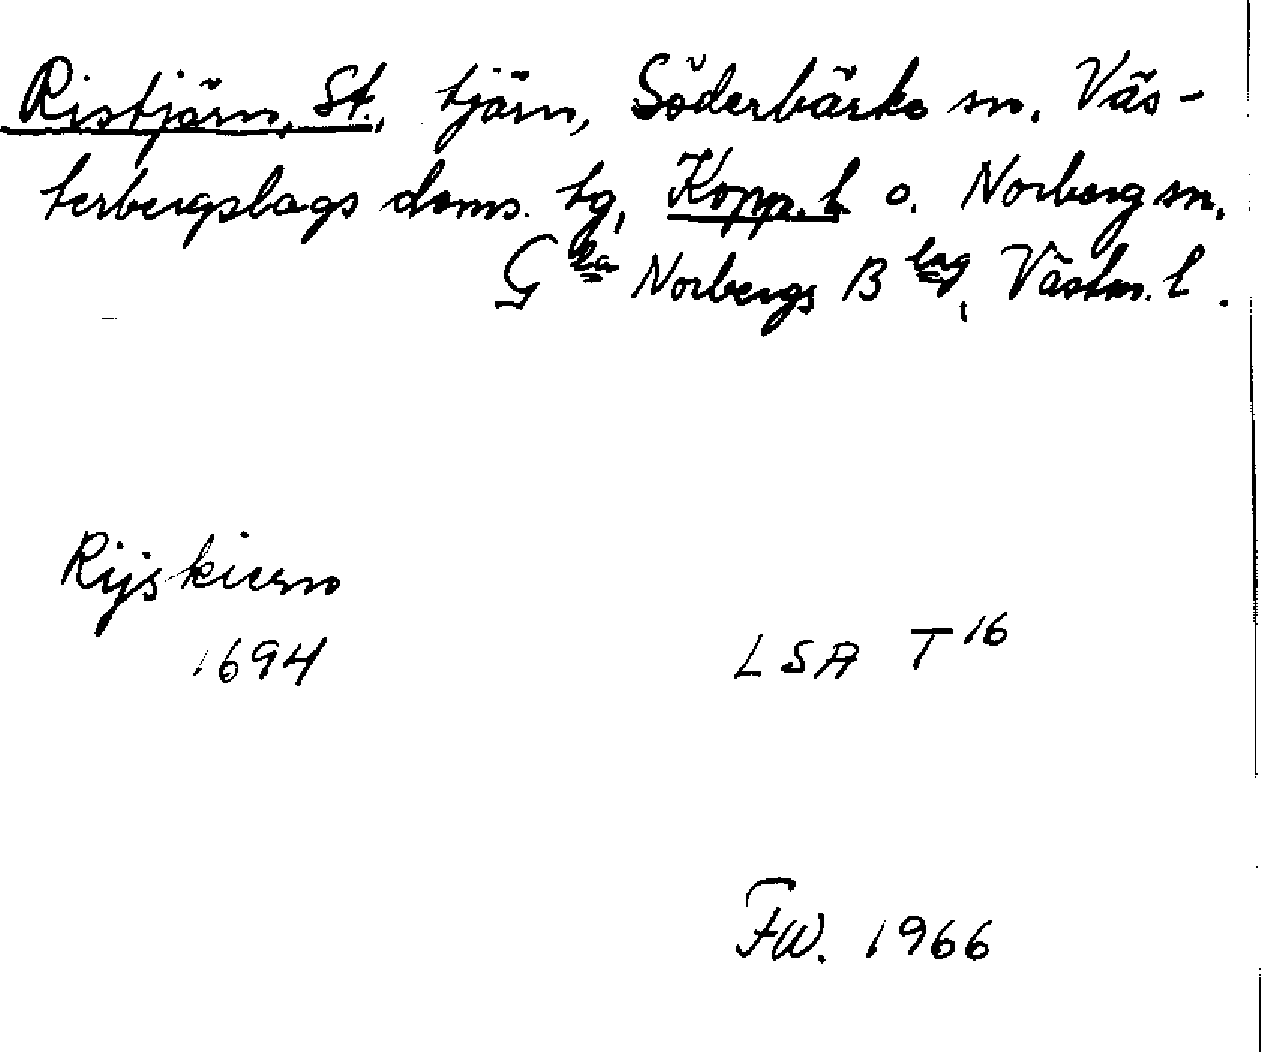 Ristjärn, St., tjärn, Söderbärke sn. Väs-
terbergslags doms. tg, Kopp. l o. Norberg sn.
Gla Norbergs Blag, Västm. l.
Rijskiern
1694
LSA T16
FW. 1966